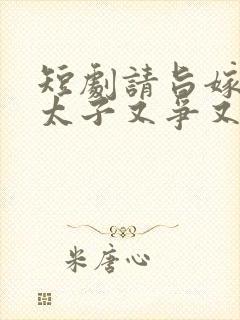 短劇請旨嫁
太子又爭又
米唐心